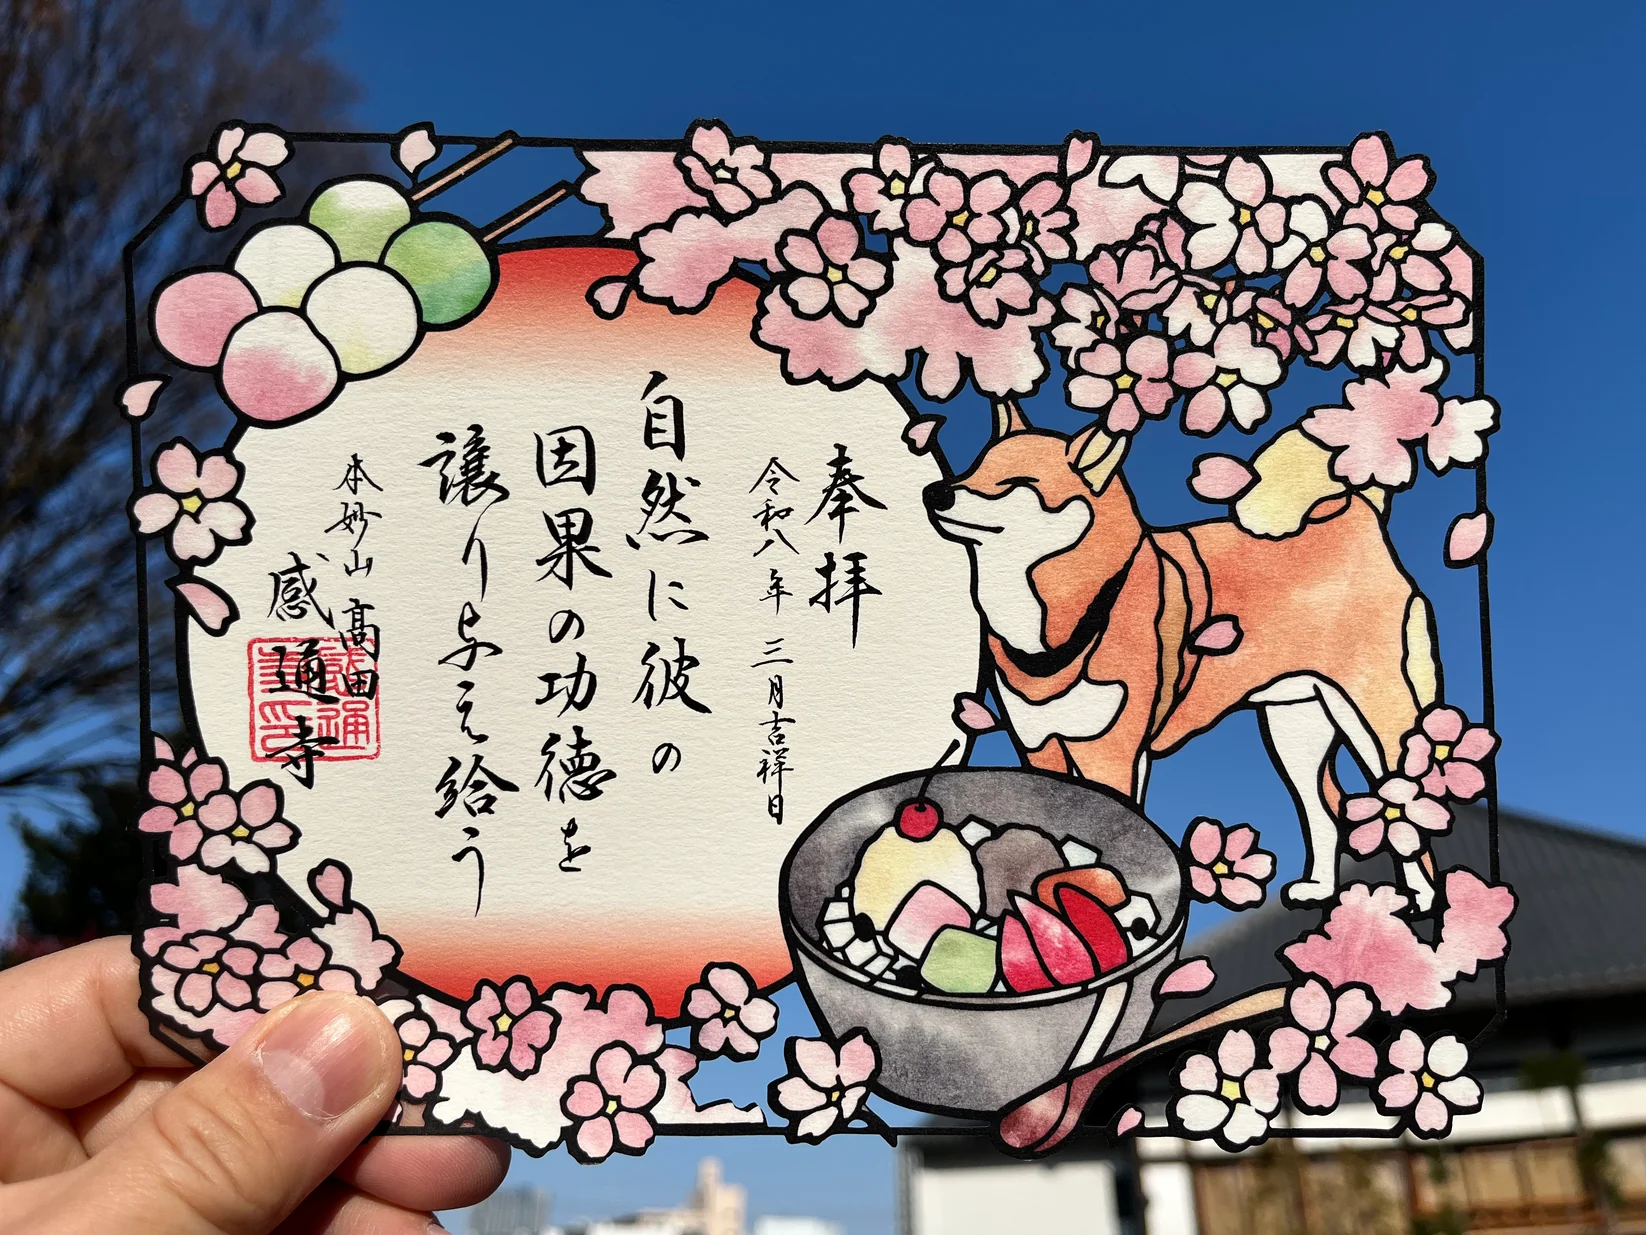 奉拝
令和八年 三月吉祥日
自然に彼の
因果の功徳を
譲り与え給う
本妙山 高田
感通寺
感通寺印